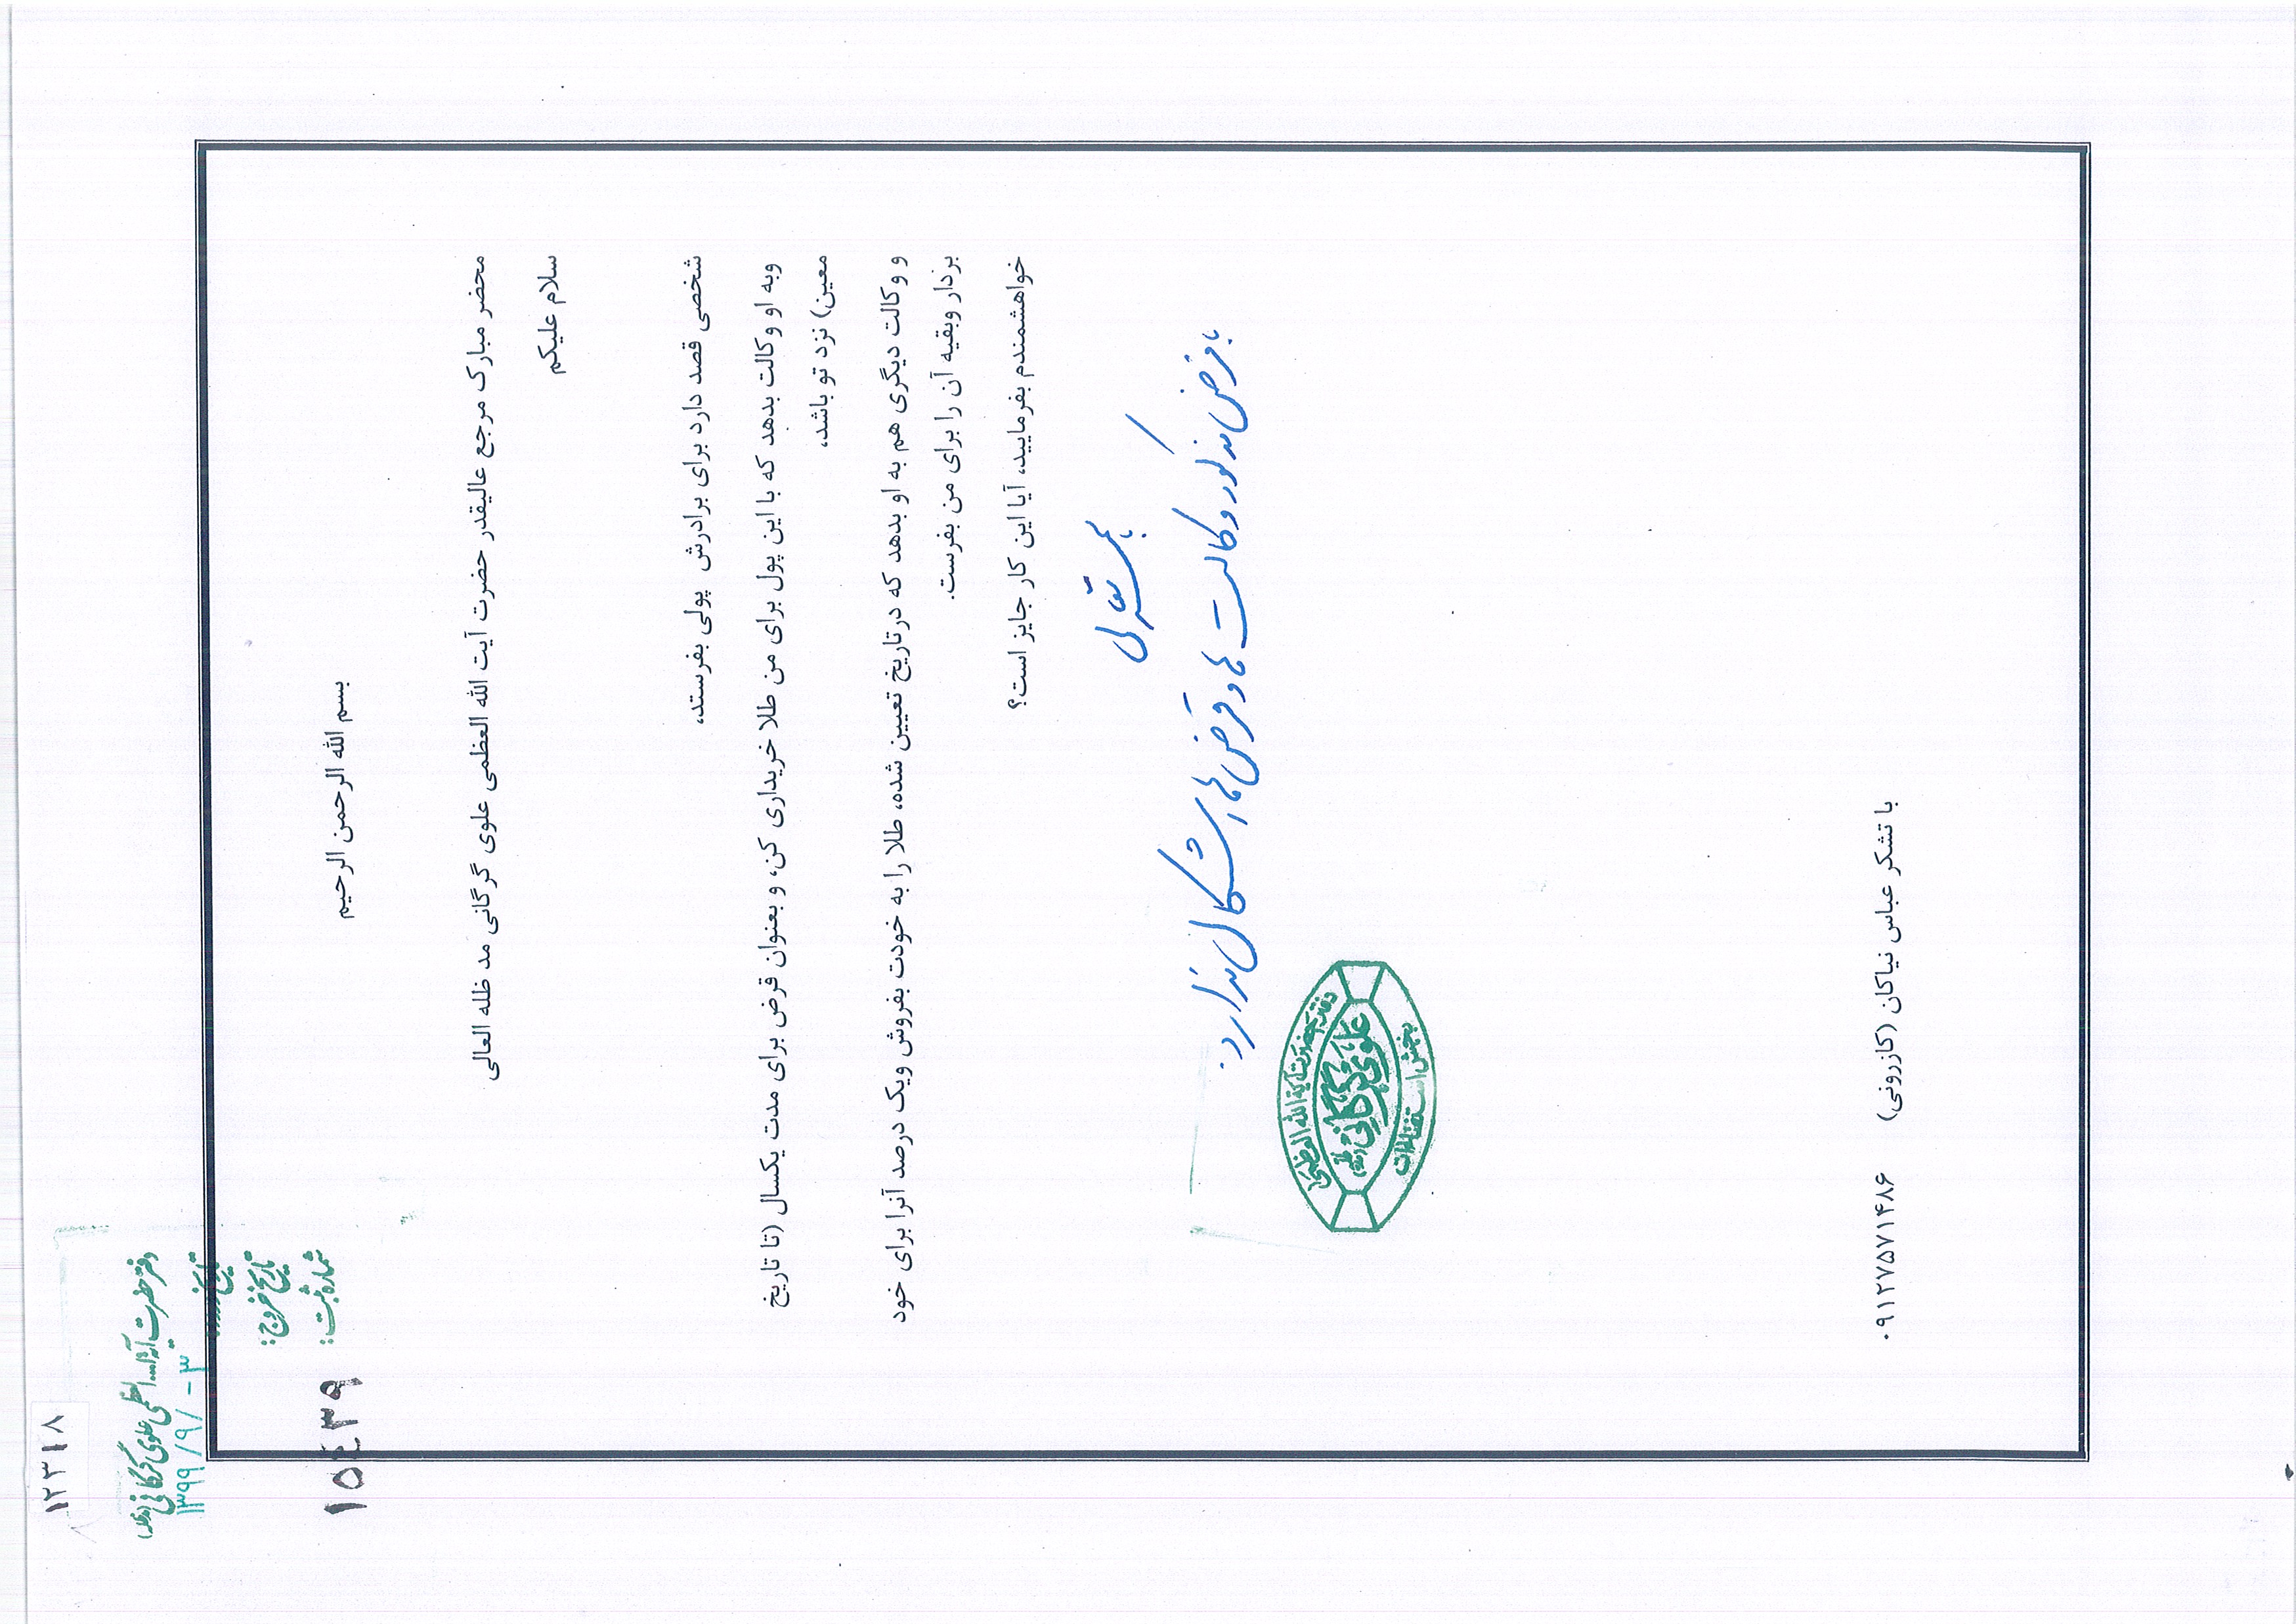 ۱۲۳۱۸
دفتر حضرت آیة ا... العظمی علوی گرگانی (مدظله)
تاریخ ورود: ۱۳۹۹/۹/-۳
تاریخ خروج:
شماره ثبت: ۱۵۴۳۹
بسم الله الرحمن الرحیم
محضر مبارک مرجع عالیقدر حضرت آیت الله العظمی علوی گرگانی مد ظله العالی
سلام علیکم
شخصی قصد دارد برای برادرش پولی بفرستد،
وبه او وکالت بدهد که با این پول برای من طلا خریداری کن، و بعنوان قرض برای مدت یکسال (تا تاریخ
معین) نزد تو باشد،
و وکالت دیگری هم به او بدهد که درتاریخ تعیین شده، طلا را به خودت بفروش ویک درصد آنرا برای خود
بردار وبقیه آن را برای من بفرست.
خواهشمندم بفرمایید، آیا این کار جایز است؟
باسمه تعالی
با فرض مذکور وکالت ها و قرض ها اشکال ندارد.
دفتر حضرت آیة الله العظمی
علوی گرگانی (مدظله)
بخش استفتائات
با تشکر عباس نیاکان (کازرونی) ۰۹۱۲۷۵۷۱۴۸۶